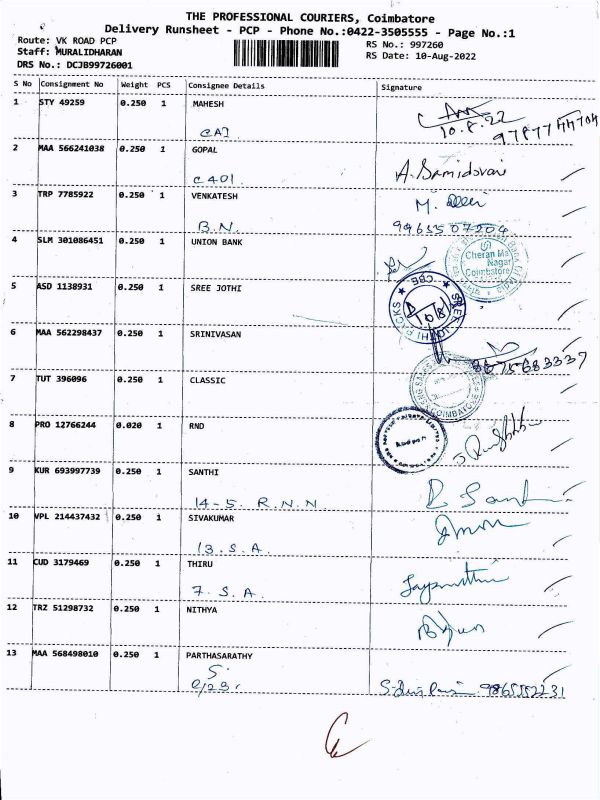 THE PROFESSIONAL COURIERS, Coimbatore
Delivery Runsheet - PCP - Phone No.:0422-3505555 - Page No.:1
Route: VK ROAD PCP
RS No.: 997260
Staff: MURALIDHARAN
RS Date: 10-Aug-2022
DRS No.: DCJB99726001
S No Consignment No Weight PCS Consignee Details Signature
1 STY 49259 0.250 1 MAHESH
10.8.22
2 MAA 566241038 0.250 1 GOPAL
C 401.
3 TRP 7785922 0.250 1 VENKATESH M.
B.N. 9965507204
4 SLM 301086451 0.250 1 UNION BANK
Cheran Ma Nagar Coimbatore
5 ASD 1138931 0.250 1 SREE JOTHI
CBE
6 MAA 562298437 0.250 1 SRINIVASAN
8675683337
7 TUT 396096 0.250 1 CLASSIC
COIMBATORE
8 PRO 12766244 0.020 1 RND
9 KUR 693997739 0.250 1 SANTHI
14-5. R.N.N.
10 VPL 214437432 0.250 1 SIVAKUMAR
13.S.A.
11 CUD 3179469 0.250 1 THIRU
7.S.A.
12 TRZ 51298732 0.250 1 NITHYA
13 MAA 568498010 0.250 1 PARTHASARATHY
S.
9865552231